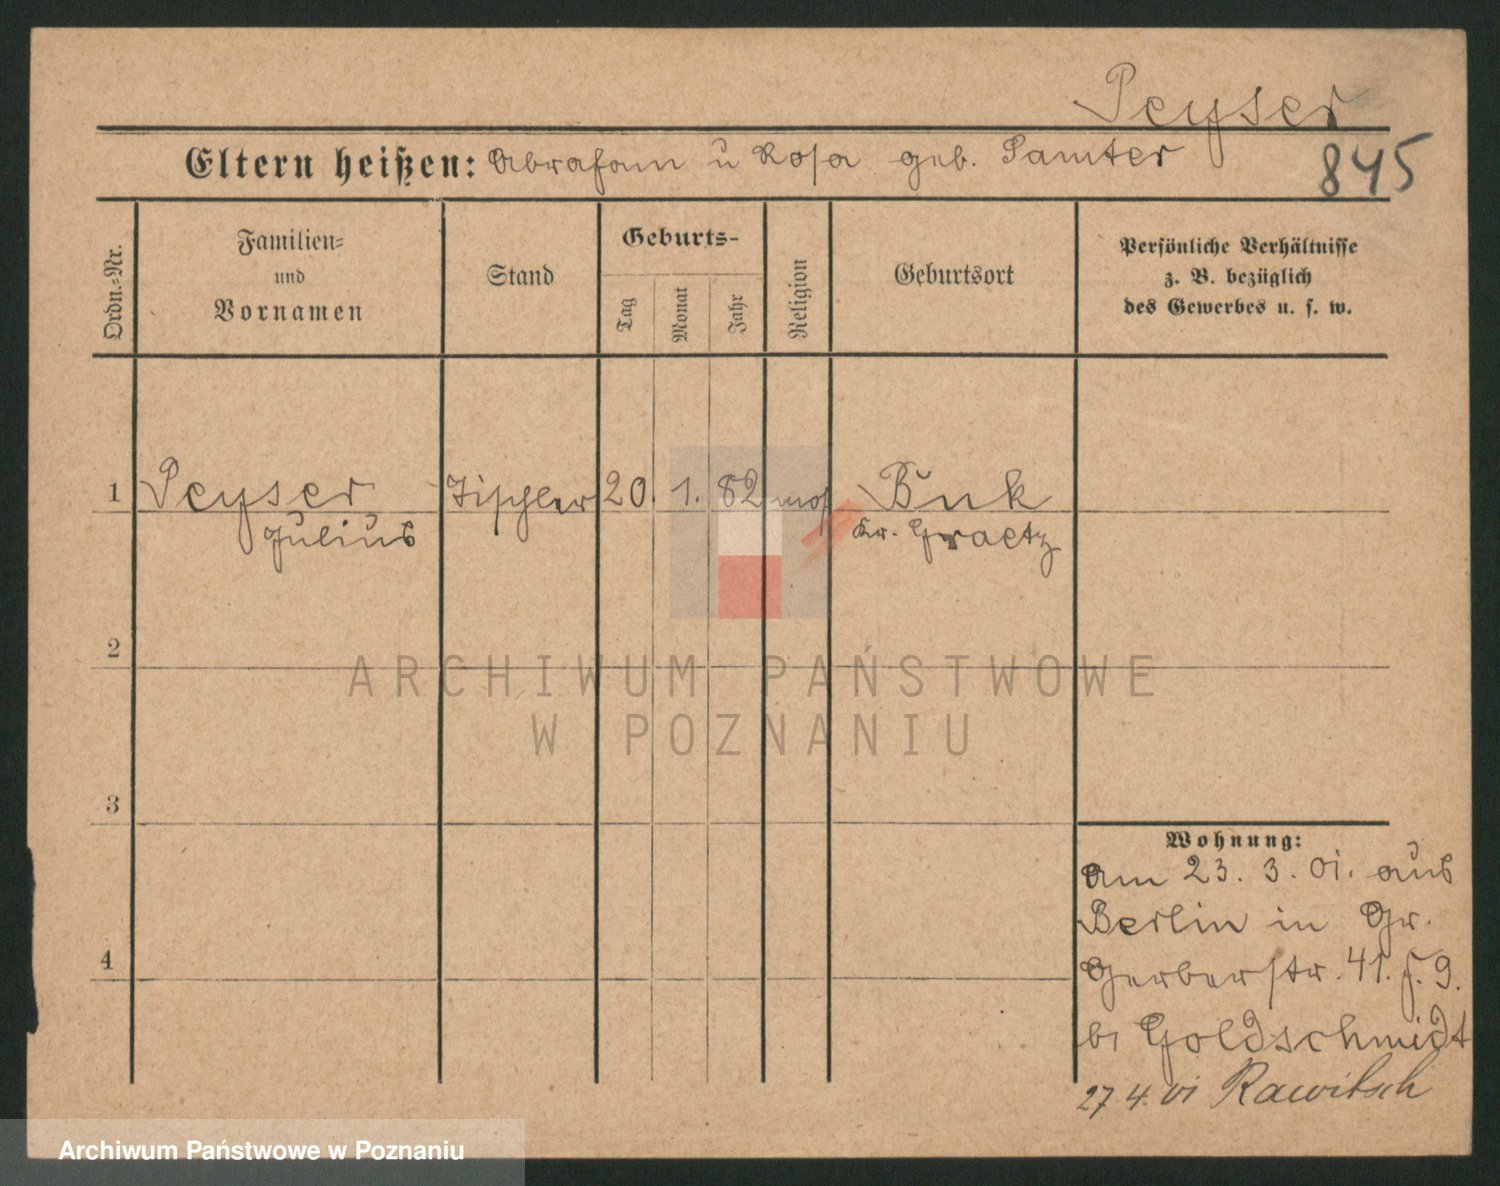 Peyser
Eltern heißen: Abraham u Rosa geb. Samter
845
Ordn.-Nr.
Familien-
und
Vornamen
Stand
Geburts-
Tag
Monat
Jahr
Religion
Geburtsort
Persönliche Verhältnisse
z. B. bezüglich
des Gewerbes u. s. w.
1 Peyser Tischler 20. 1. 82 mos Buk
Julius Kr. Graetz
2
ARCHIWUM PAŃSTWOWE
W POZNANIU
3
Wohnung:
am 23. 3. 01. aus
Berlin in Gr.
4
Gerberstr. 41. H. 9.
bi Goldschmidt
27.4.01 Rawitsch
Archiwum Państwowe w Poznaniu